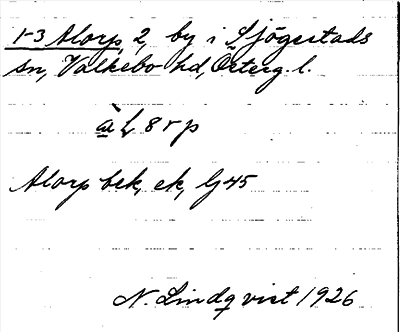 1-3 Alorp, 2, by i Sjögestads
sn, Valkebo hd, Österg. l.
Alorp bek, ek, Gj 45
N. Lindqvist 1926